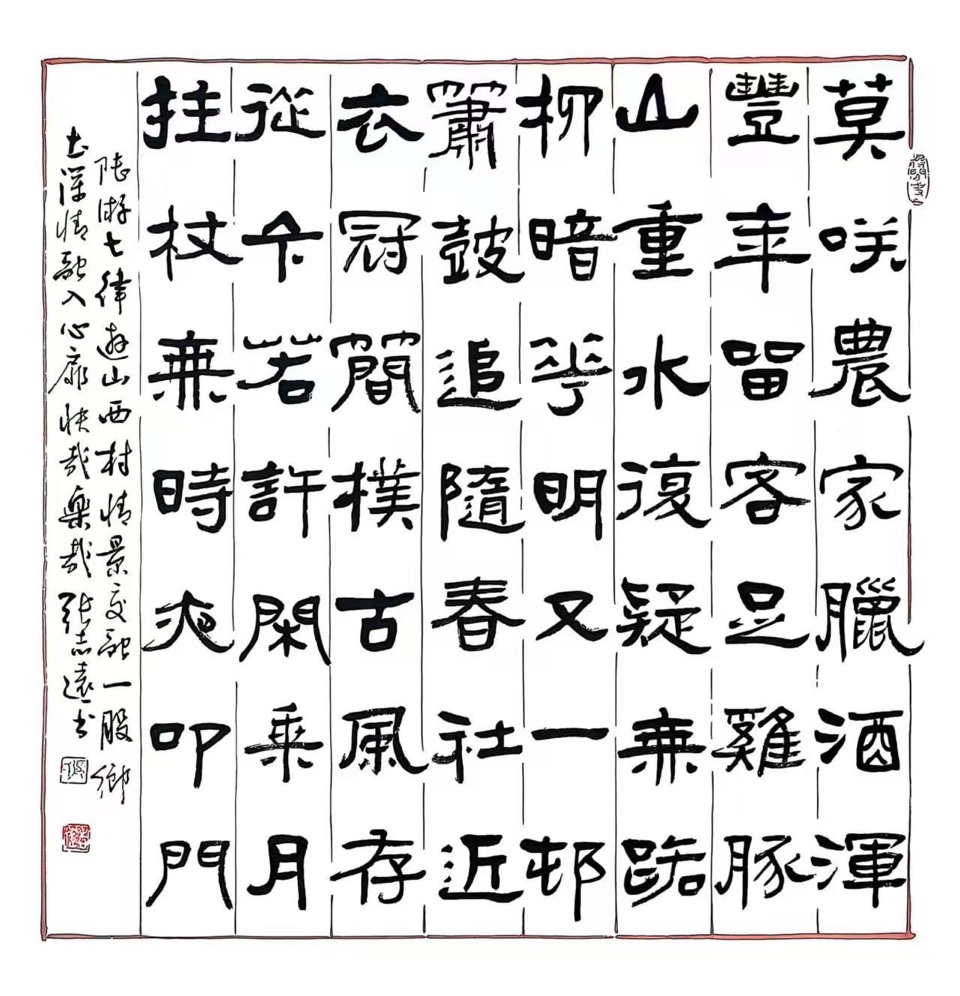 莫咲農家臘酒渾
豐年留客足雞豚
山重水復疑無路
柳暗花明又一邨
簫鼓追隨春社近
衣冠簡樸古風存
從今若許閑乘月
拄杖無時夜叩門
陸游七律遊山西村情景交融一股鄉
土深情融入心扉快哉樂哉張志遠書